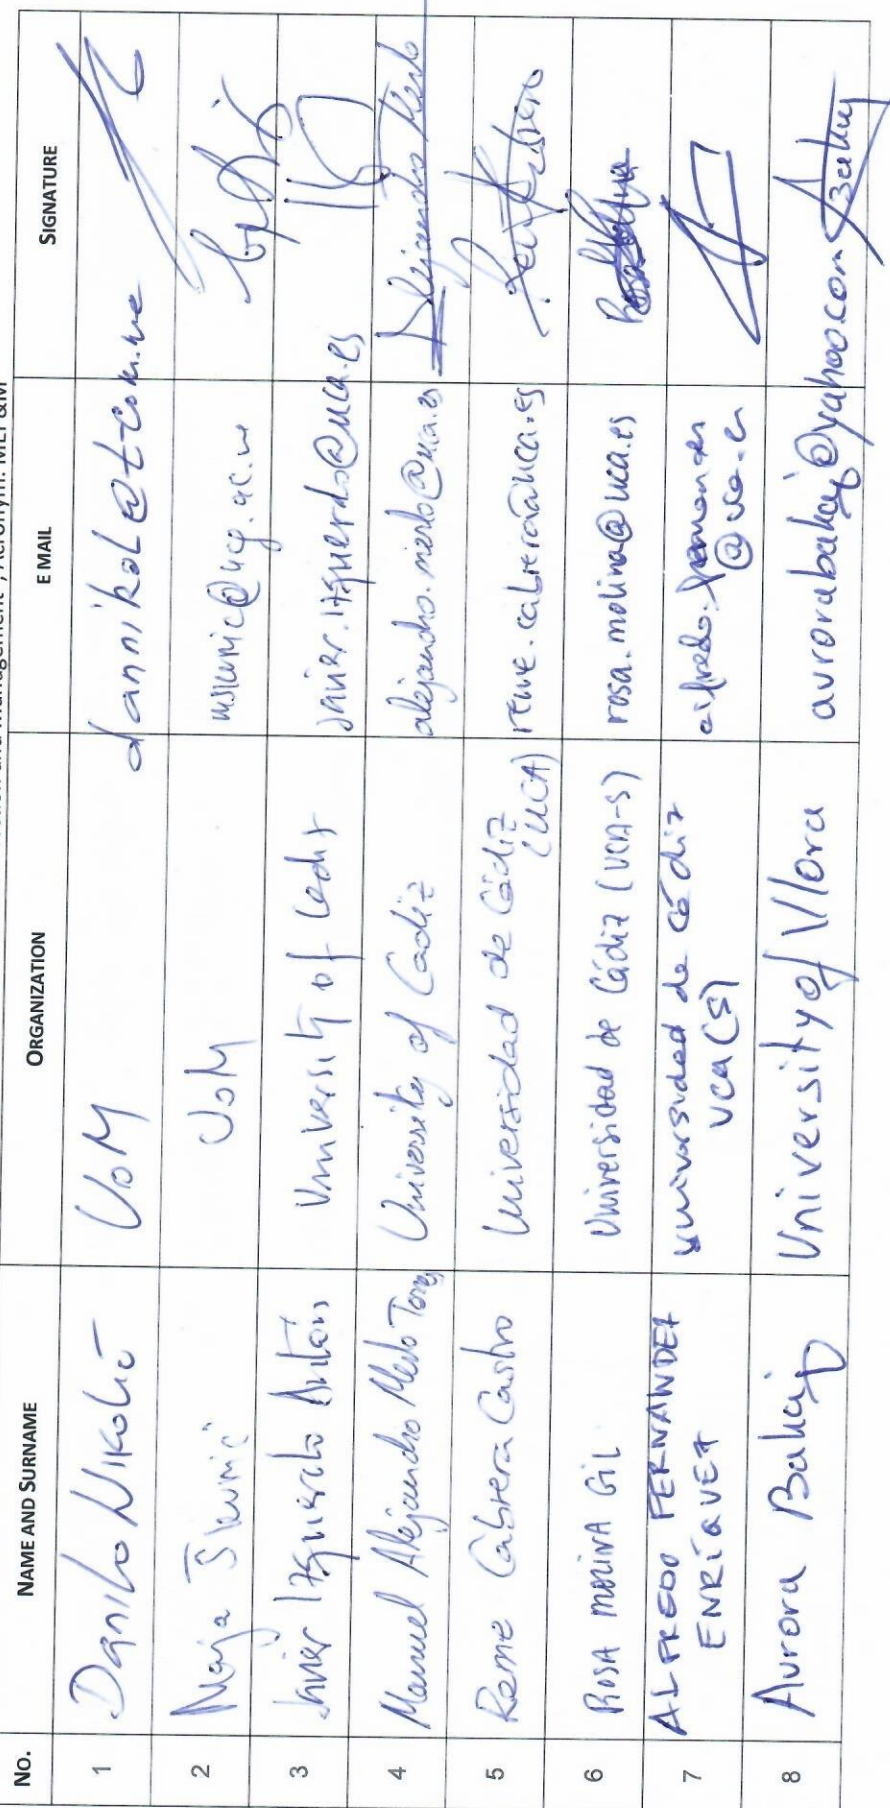 Management", Acronym: MEP&M
No. NAME AND SURNAME ORGANIZATION E MAIL SIGNATURE
1 Danilo Nikolić UoM dannikol@t-com.me
2 Maja Škurić UoM mskuric@ucg.ac.me
3 Javier Izquierdo Antón University of Cadiz javier.izquierdo@uca.es
4 Manuel Alejandro Merlo Torres University of Cadiz alejandro.merlo@uca.es Alejandro Merlo
5 Reme Cabrera Castro Universidad de Cádiz reme.cabrera@uca.es
(UCA)
6 ROSA MOLINA GIL Universidad de Cádiz (UCA-S) rosa.molina@uca.es
7 ALFREDO FERNÁNDEZ Universidad de Cádiz alfredo.fernandez
ENRÍQUEZ UCA(S) @uca.es
8 Aurora Bakaj University of Vlora aurorabakaj@yahoo.com ABakaj